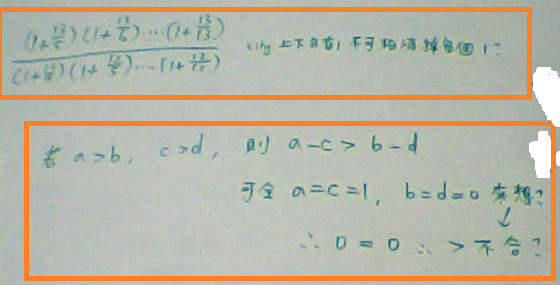 (1+13/5)(1+13/6)⋯(1+13/13)
(1+12/4)(1+12/5)⋯(1+12/12) why 上下各有1不可相消掉每個1?
若 a>b, c>d, 則 a-c > b-d
可令 a=c=1, b=d=0 來想?
↓
∴ 0 = 0 ∴ > 不合?